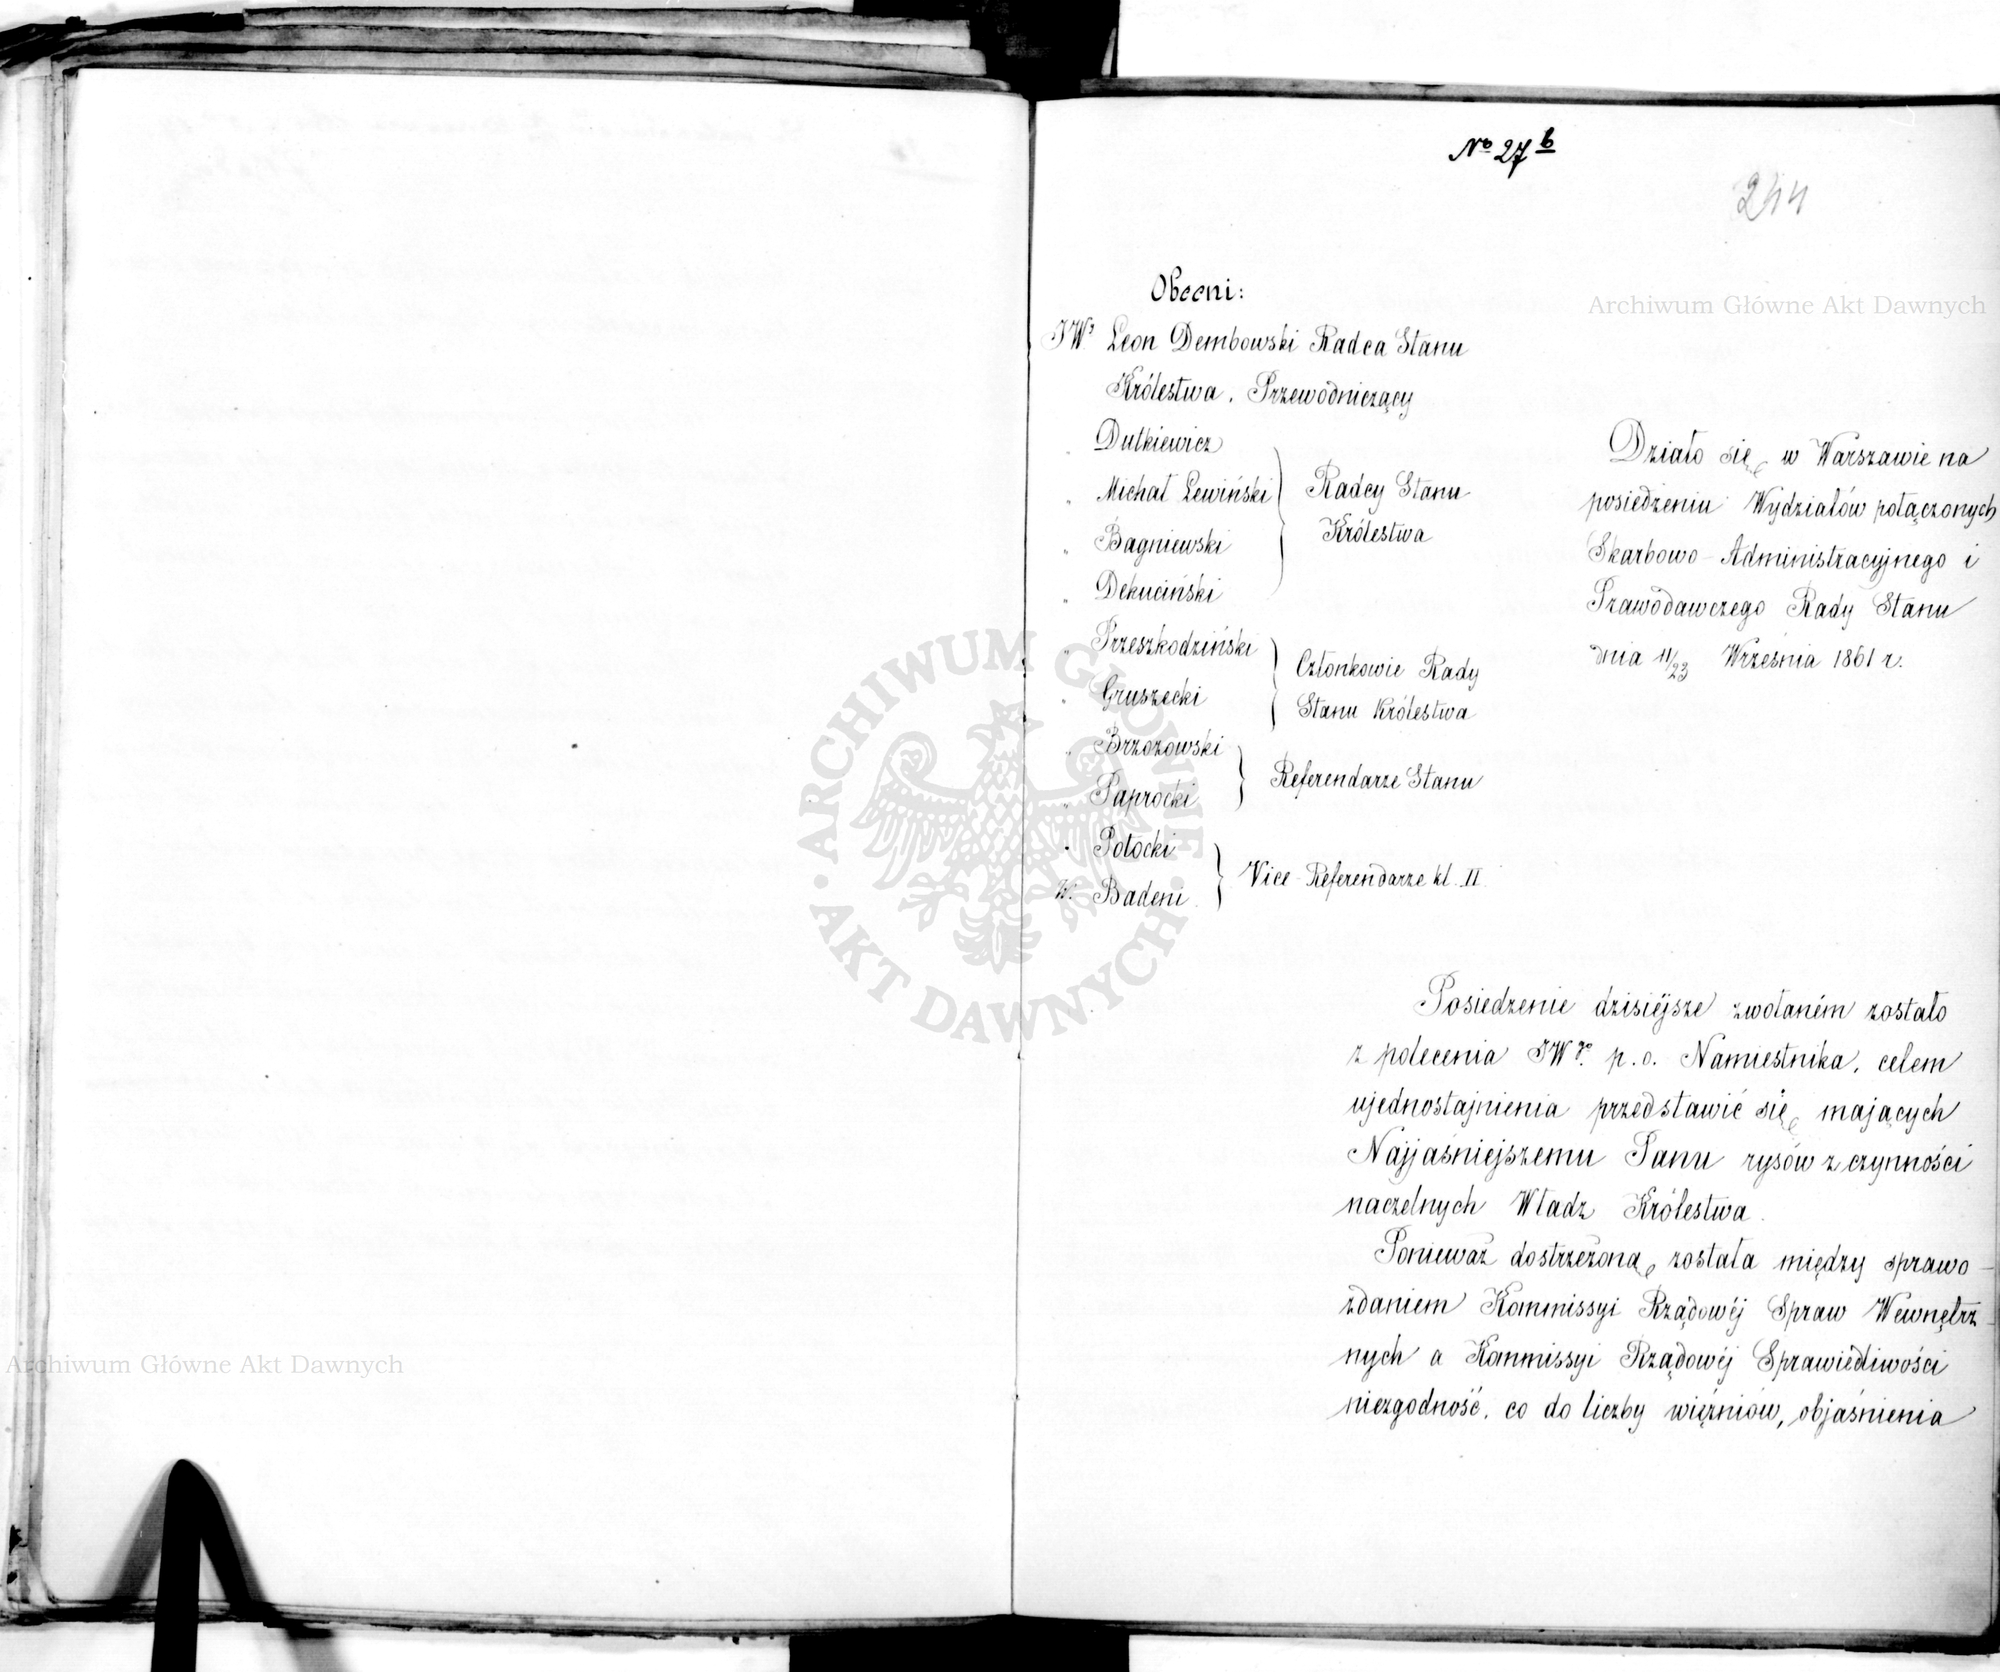 No 27 b
244
Obecni:
JW. Leon Dembowski Radca Stanu
Królestwa, Przewodniczący
„ Dutkiewicz
„ Michał Lewiński
„ Bagniewski
„ Dekuciński
Radcy Stanu
Królestwa
„ Przeszkodziński
„ Gruszecki
Członkowie Rady
Stanu Królestwa
„ Brzozowski
„ Paprocki
Referendarze Stanu
„ Potocki
W. Badeni
Vice-Referendarze kl. II.
Działo się w Warszawie na
posiedzeniu Wydziałów połączonych
Skarbowo-Administracyjnego i
Prawodawczego Rady Stanu
dnia 11/23 Września 1861 r.
Posiedzenie dzisiéjsze zwołaném zostało
z polecenia JWgo p.o. Namiestnika, celem
ujednostajnienia przedstawić się mających
Najjaśniejszemu Panu rysów z czynności
naczelnych Władz Królestwa.
Ponieważ dostrzeżoną została między sprawo-
zdaniem Kommissyi Rządowéj Spraw Wewnętrz-
nych a Kommissyi Rządowéj Sprawiedliwości
niezgodność, co do liczby więźniów, objaśnienia
Archiwum Główne Akt Dawnych
ARCHIWUM GŁÓWNE · AKT DAWNYCH ·
Archiwum Główne Akt Dawnych